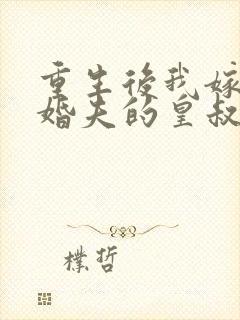 重生後我嫁
婚夫的皇叔
樸哲